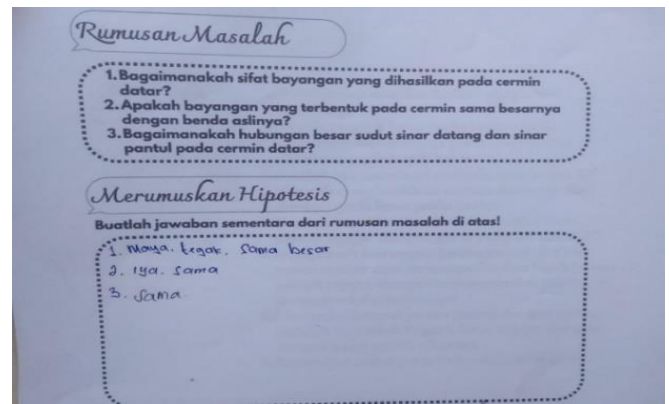 Rumusan Masalah
1. Bagaimanakah sifat bayangan yang dihasilkan pada cermin
datar?
2. Apakah bayangan yang terbentuk pada cermin sama besarnya
dengan benda aslinya?
3. Bagaimanakah hubungan besar sudut sinar datang dan sinar
pantul pada cermin datar?
Merumuskan Hipotesis
Buatlah jawaban sementara dari rumusan masalah di atas!
1. Maya. tegak. Sama besar
2. Iya. sama
3. Sama.